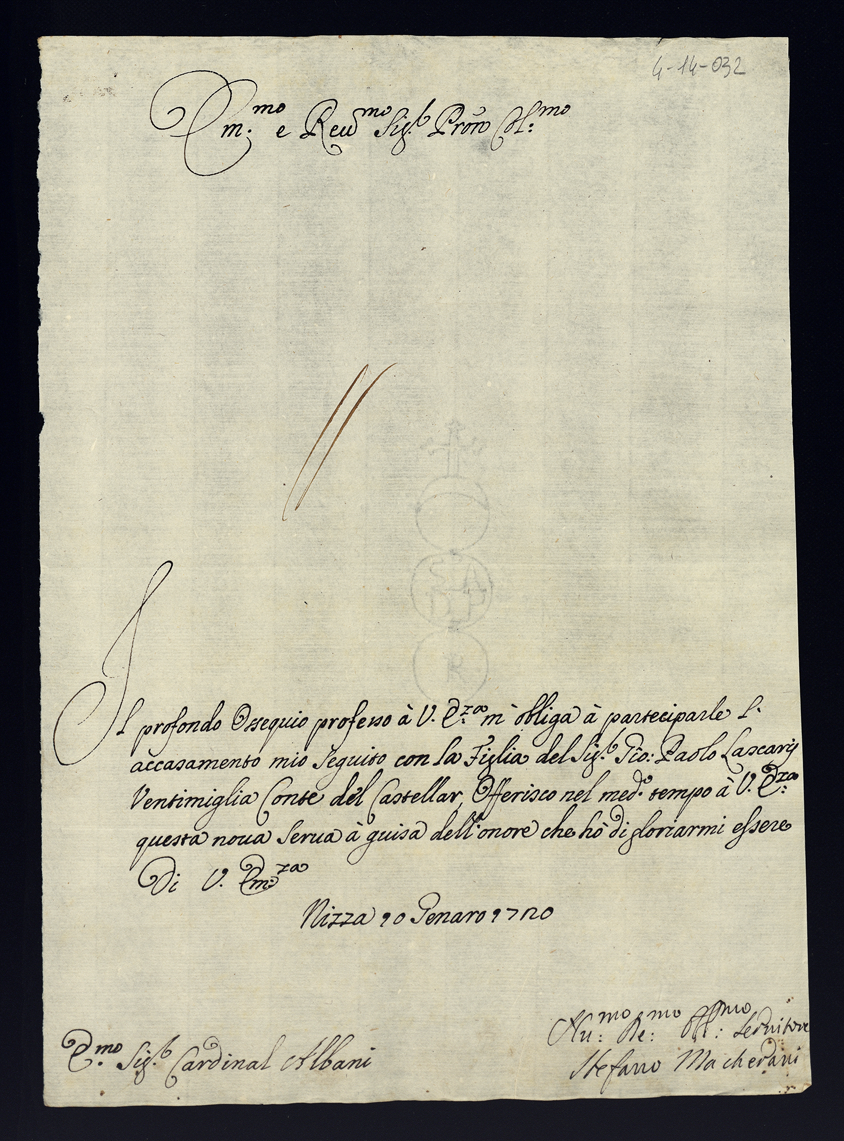 4-14-032
Em:mo e Reu.mo Sig.r Pron Col:mo
Il profondo Ossequio professo à V. E.za m'obliga à parteciparle l'
accasamento mio seguito con la Figlia del Sig.r Gio: Paolo Lascaris
Ventimiglia Conte del Castellar, Offerisco nel med.o tempo à V. E.za
questa noua Serua à guisa dell'onore che hò di gloriarmi essere
Di V. Em:za
Nizza 10 Genaro
E.mo Sig.r Cardinal Albani
Hu:mo De:mo Obl:mo Seruitore
Stefano
S A
D P
R